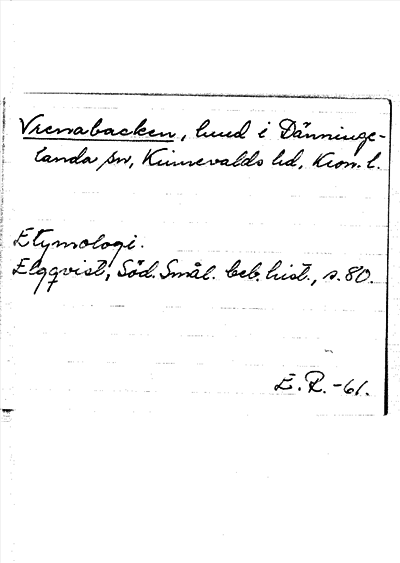 Vrenabacken, hmd i Dänninge-
landa sn, Kinnevalds hd, Kron. l.
Etymologi.
Elqqvist, Söd. Smål. beb. hist., s. 80.
E. R. -61.